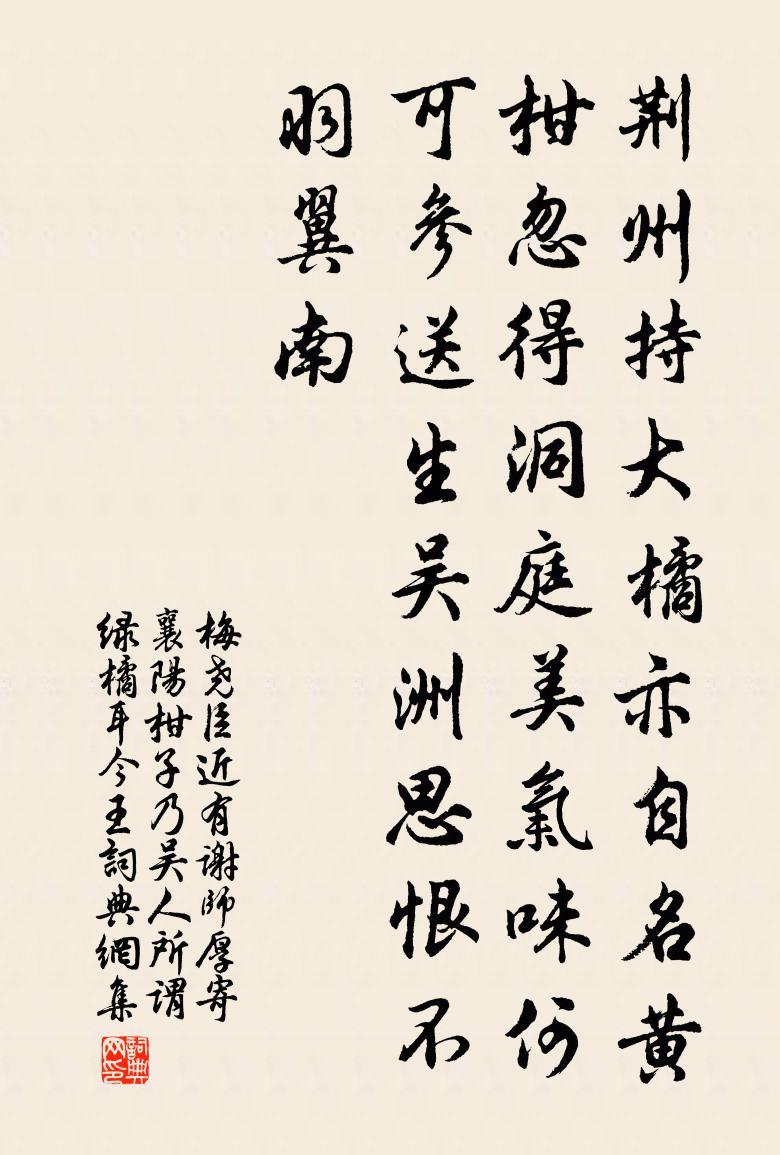 荆州持大橘亦自名黄
柑忽得洞庭美氣味何
可參送生吴洲思恨不
羽翼南
梅尧臣近有謝師厚寄
襄陽柑子乃吴人所谓
绿橘耳今王詞典網集
詞典网印